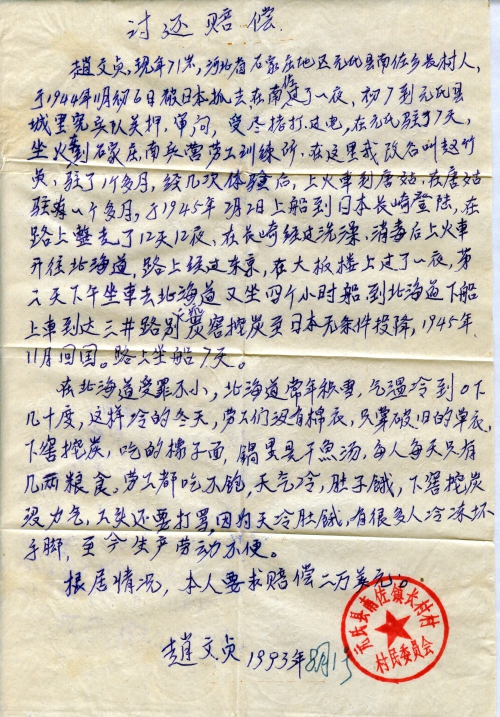 讨还赔偿
赵文贞,现年71岁,河北省石家庄地区元氏县南佐乡长村人,
于1944年11月初6日被日本抓去,在南佐过了一夜,初7到元氏县
城里宪兵队关押,审问,受尽拷打过电,在元氏驻了7天,
坐火车到石家庄南兵营劳工训练所,在这里我改名叫赵竹
驻了1个多月,经几次体验后,上火车到唐沽,在唐沽
驻有一个多月,于1945年2月2日上船到日本长崎登陆,在
路上整走了12天12夜,在长崎经过洗澡,消毒后上火车
开往北海道,路上经过东京,在大板楼上过了一夜,第
二天下午坐车去北海道又坐四个小时船到北海道下船
上车到达三井路别炭窑挖炭至日本无条件投降,1945年
11月回国。路上坐船7天。
在北海道受罪不小,北海道常年积雪,气温冷到0下
几十度,这样冷的冬天,劳工们没有棉衣,只穿破旧的单衣,
下窑挖炭,吃的橡子面,锅里是干鱼汤,每人每天只有
几两粮食,劳工都吃不饱,天气冷,肚子饿,下窑挖炭
没力气,工头还要打骂,因为天冷肚饿,有很多人冷冻坏
手脚,至今生产劳动不便。
根居情况,本人要求赔偿二万美元。
元氏县南佐镇长村村
村民委员会
赵文贞 1993年8月